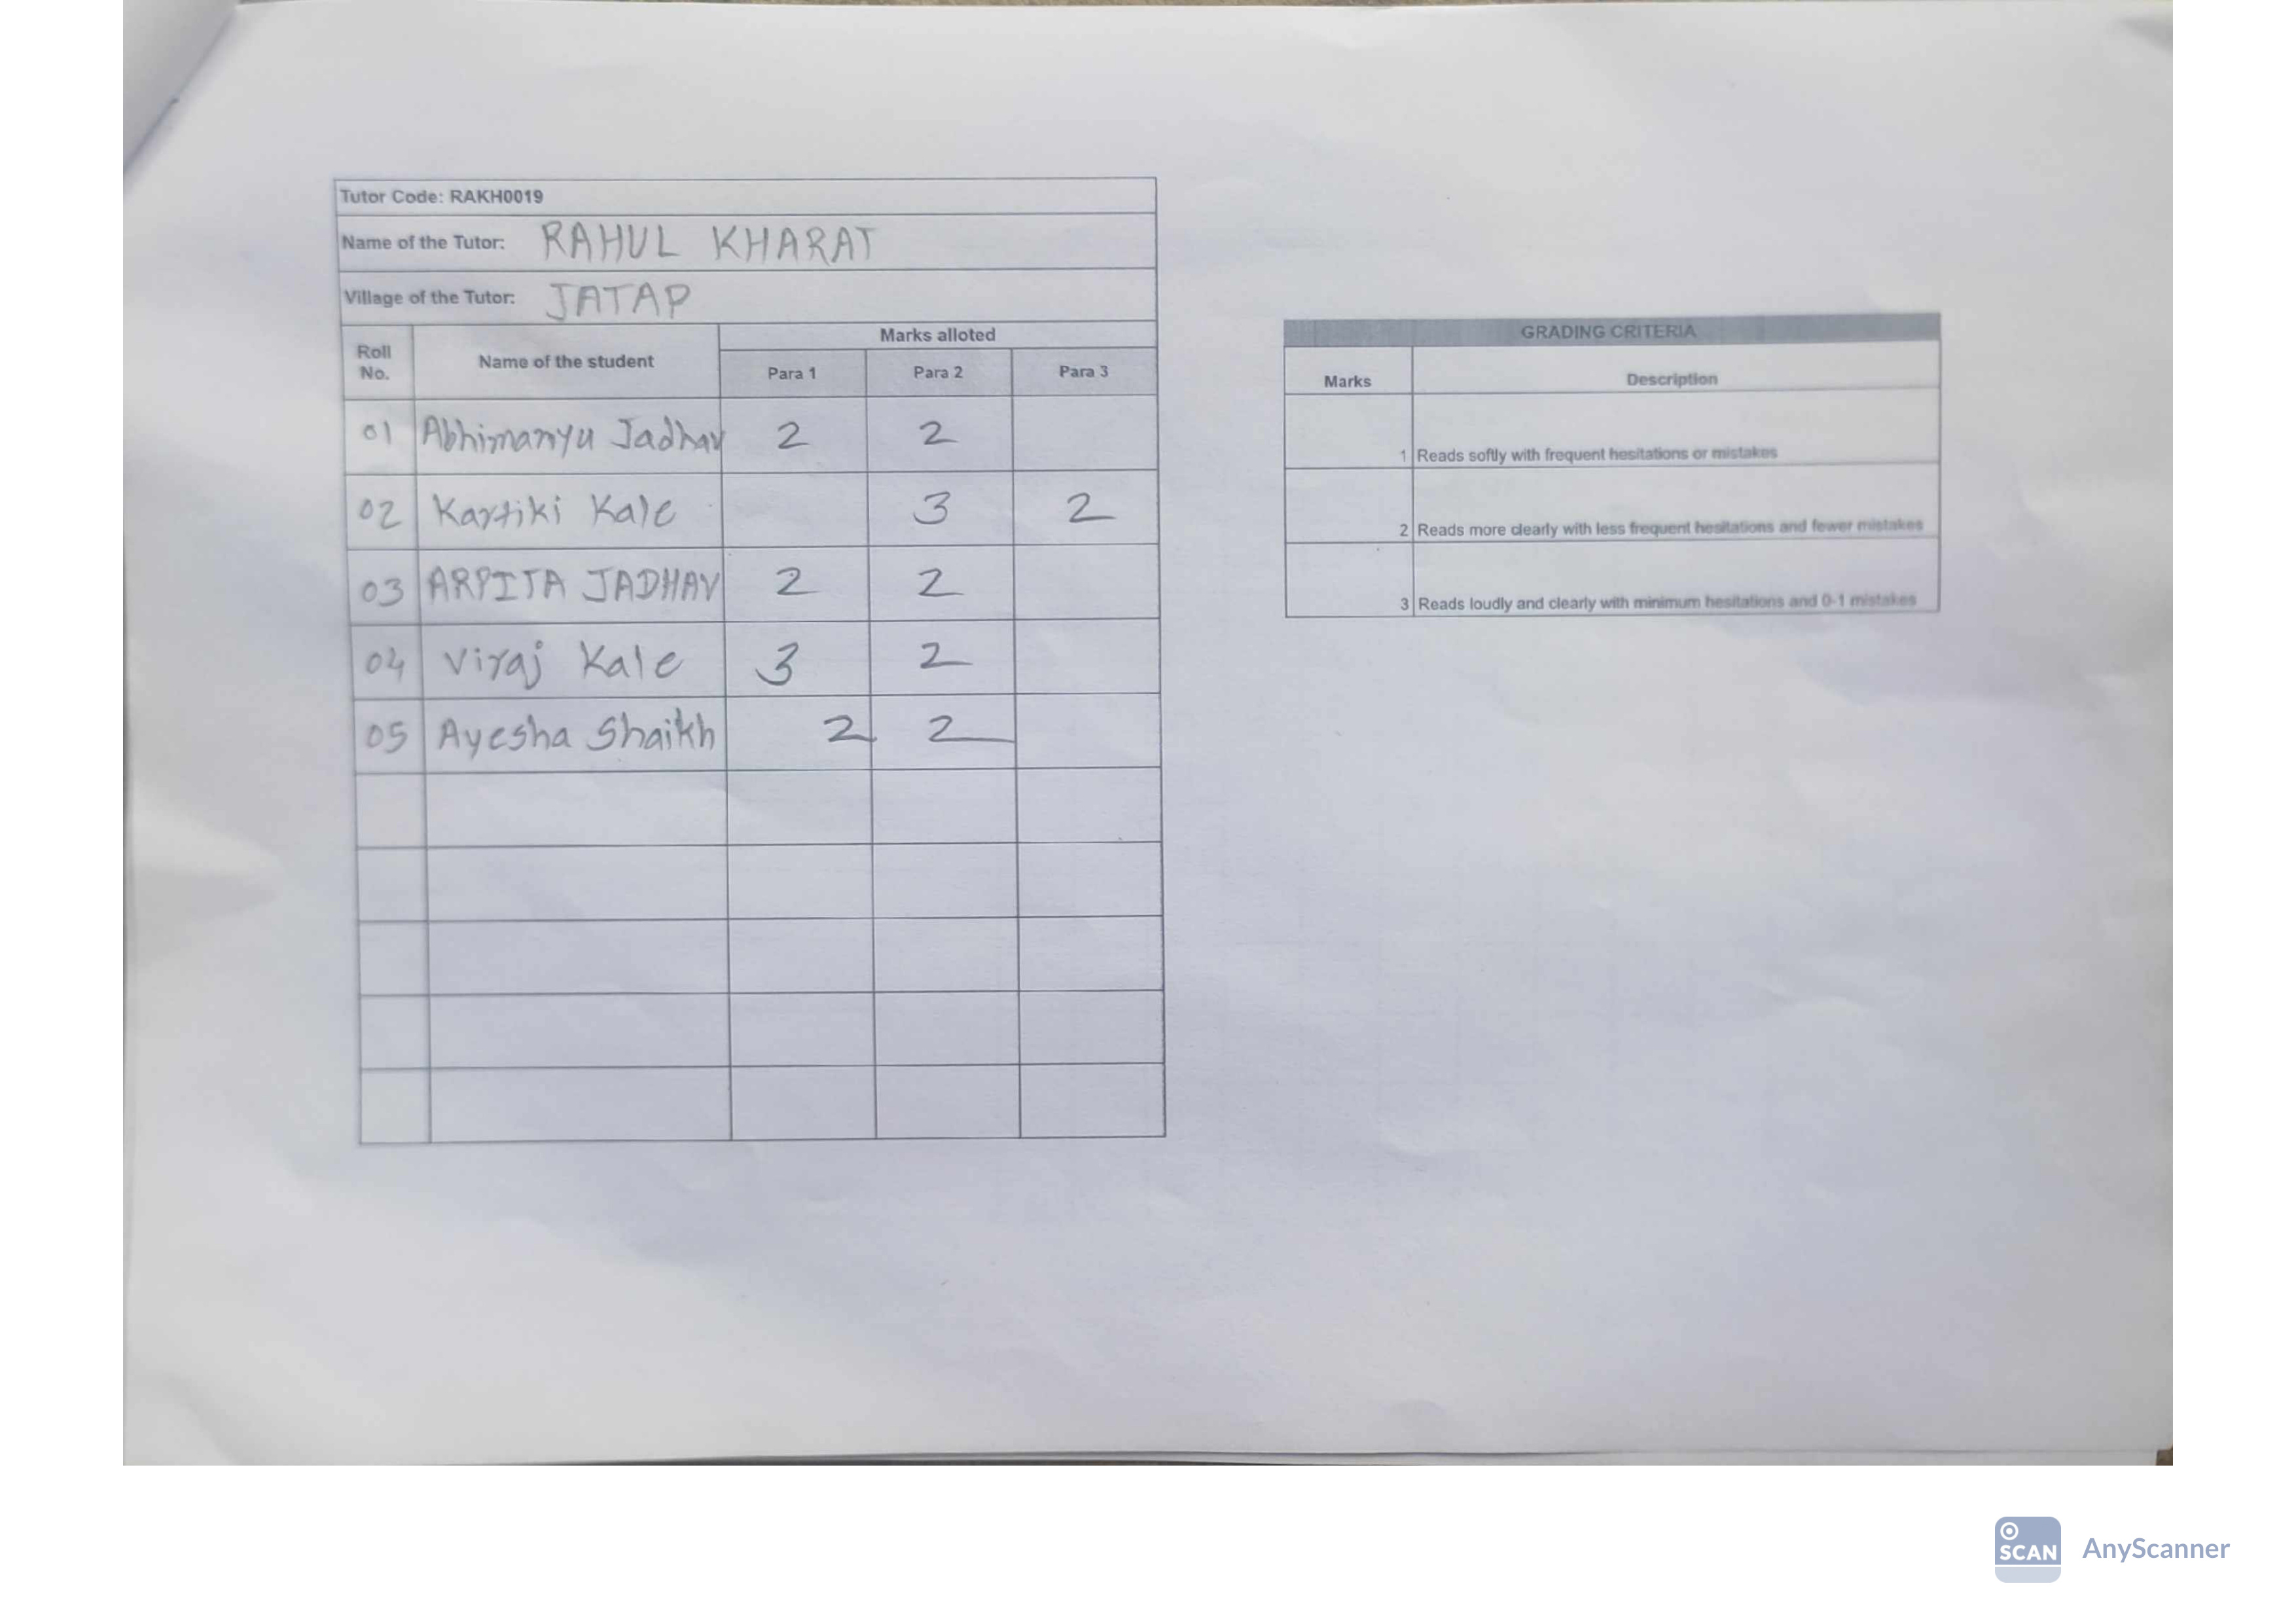 Tutor Code: RAKH0019
Name of the Tutor: RAHUL KHARAT
Village of the Tutor: JATAP
Roll No. Name of the student Marks alloted
Para 1 Para 2 Para 3
01 Abhimanyu Jadhav 2 2
02 Kartiki Kale 3 2
03 ARPITA JADHAV 2 2
04 Viraj Kale 3 2
05 Ayesha Shaikh 2 2
GRADING CRITERIA
Marks Description
1 Reads softly with frequent hesitations or mistakes
2 Reads more clearly with less frequent hesitations and fewer mistakes
3 Reads loudly and clearly with minimum hesitations and 0-1 mistakes
SCAN AnyScanner